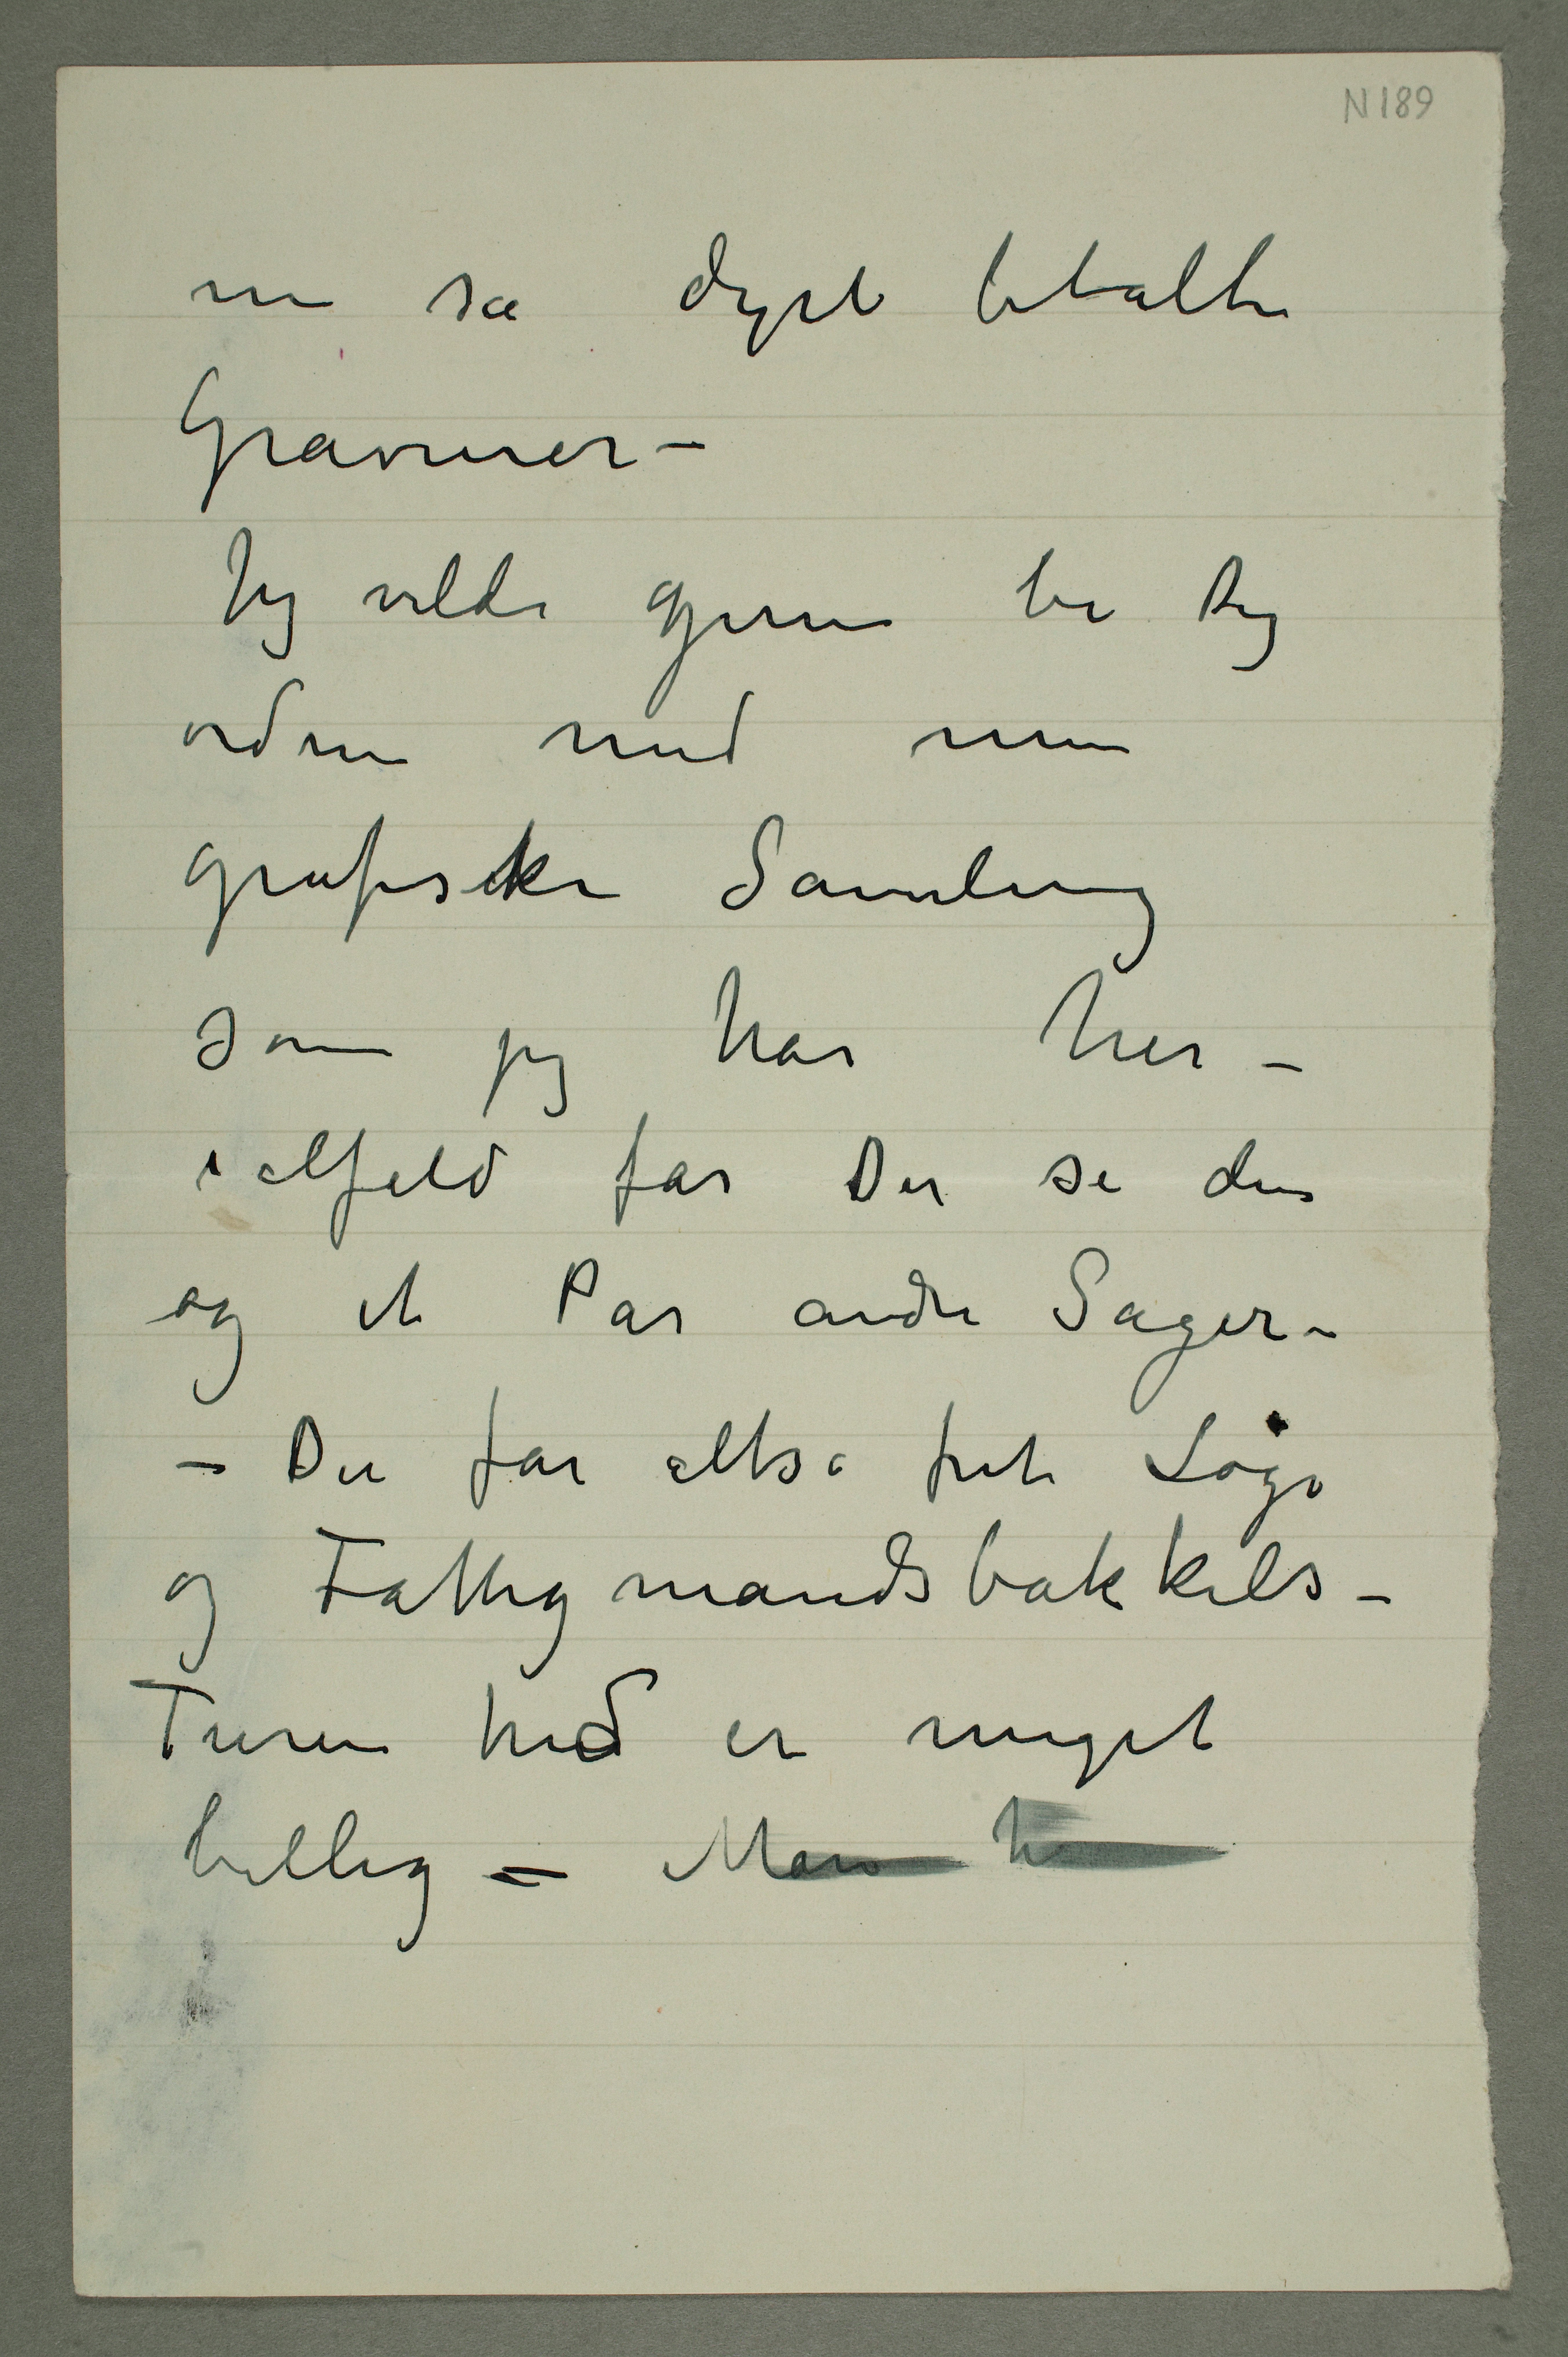 N189
nu så dyrt betalte
Gravurer –
Jeg vilde gjerne be Dig
ordne med min
grafiske Samling
som jeg har her –
ialfald får Du se den
og et Par andre Sager –
– Du får altså frit Logi
og Fattigmandsbakkels –
Turen hid er meget
billig – Man h